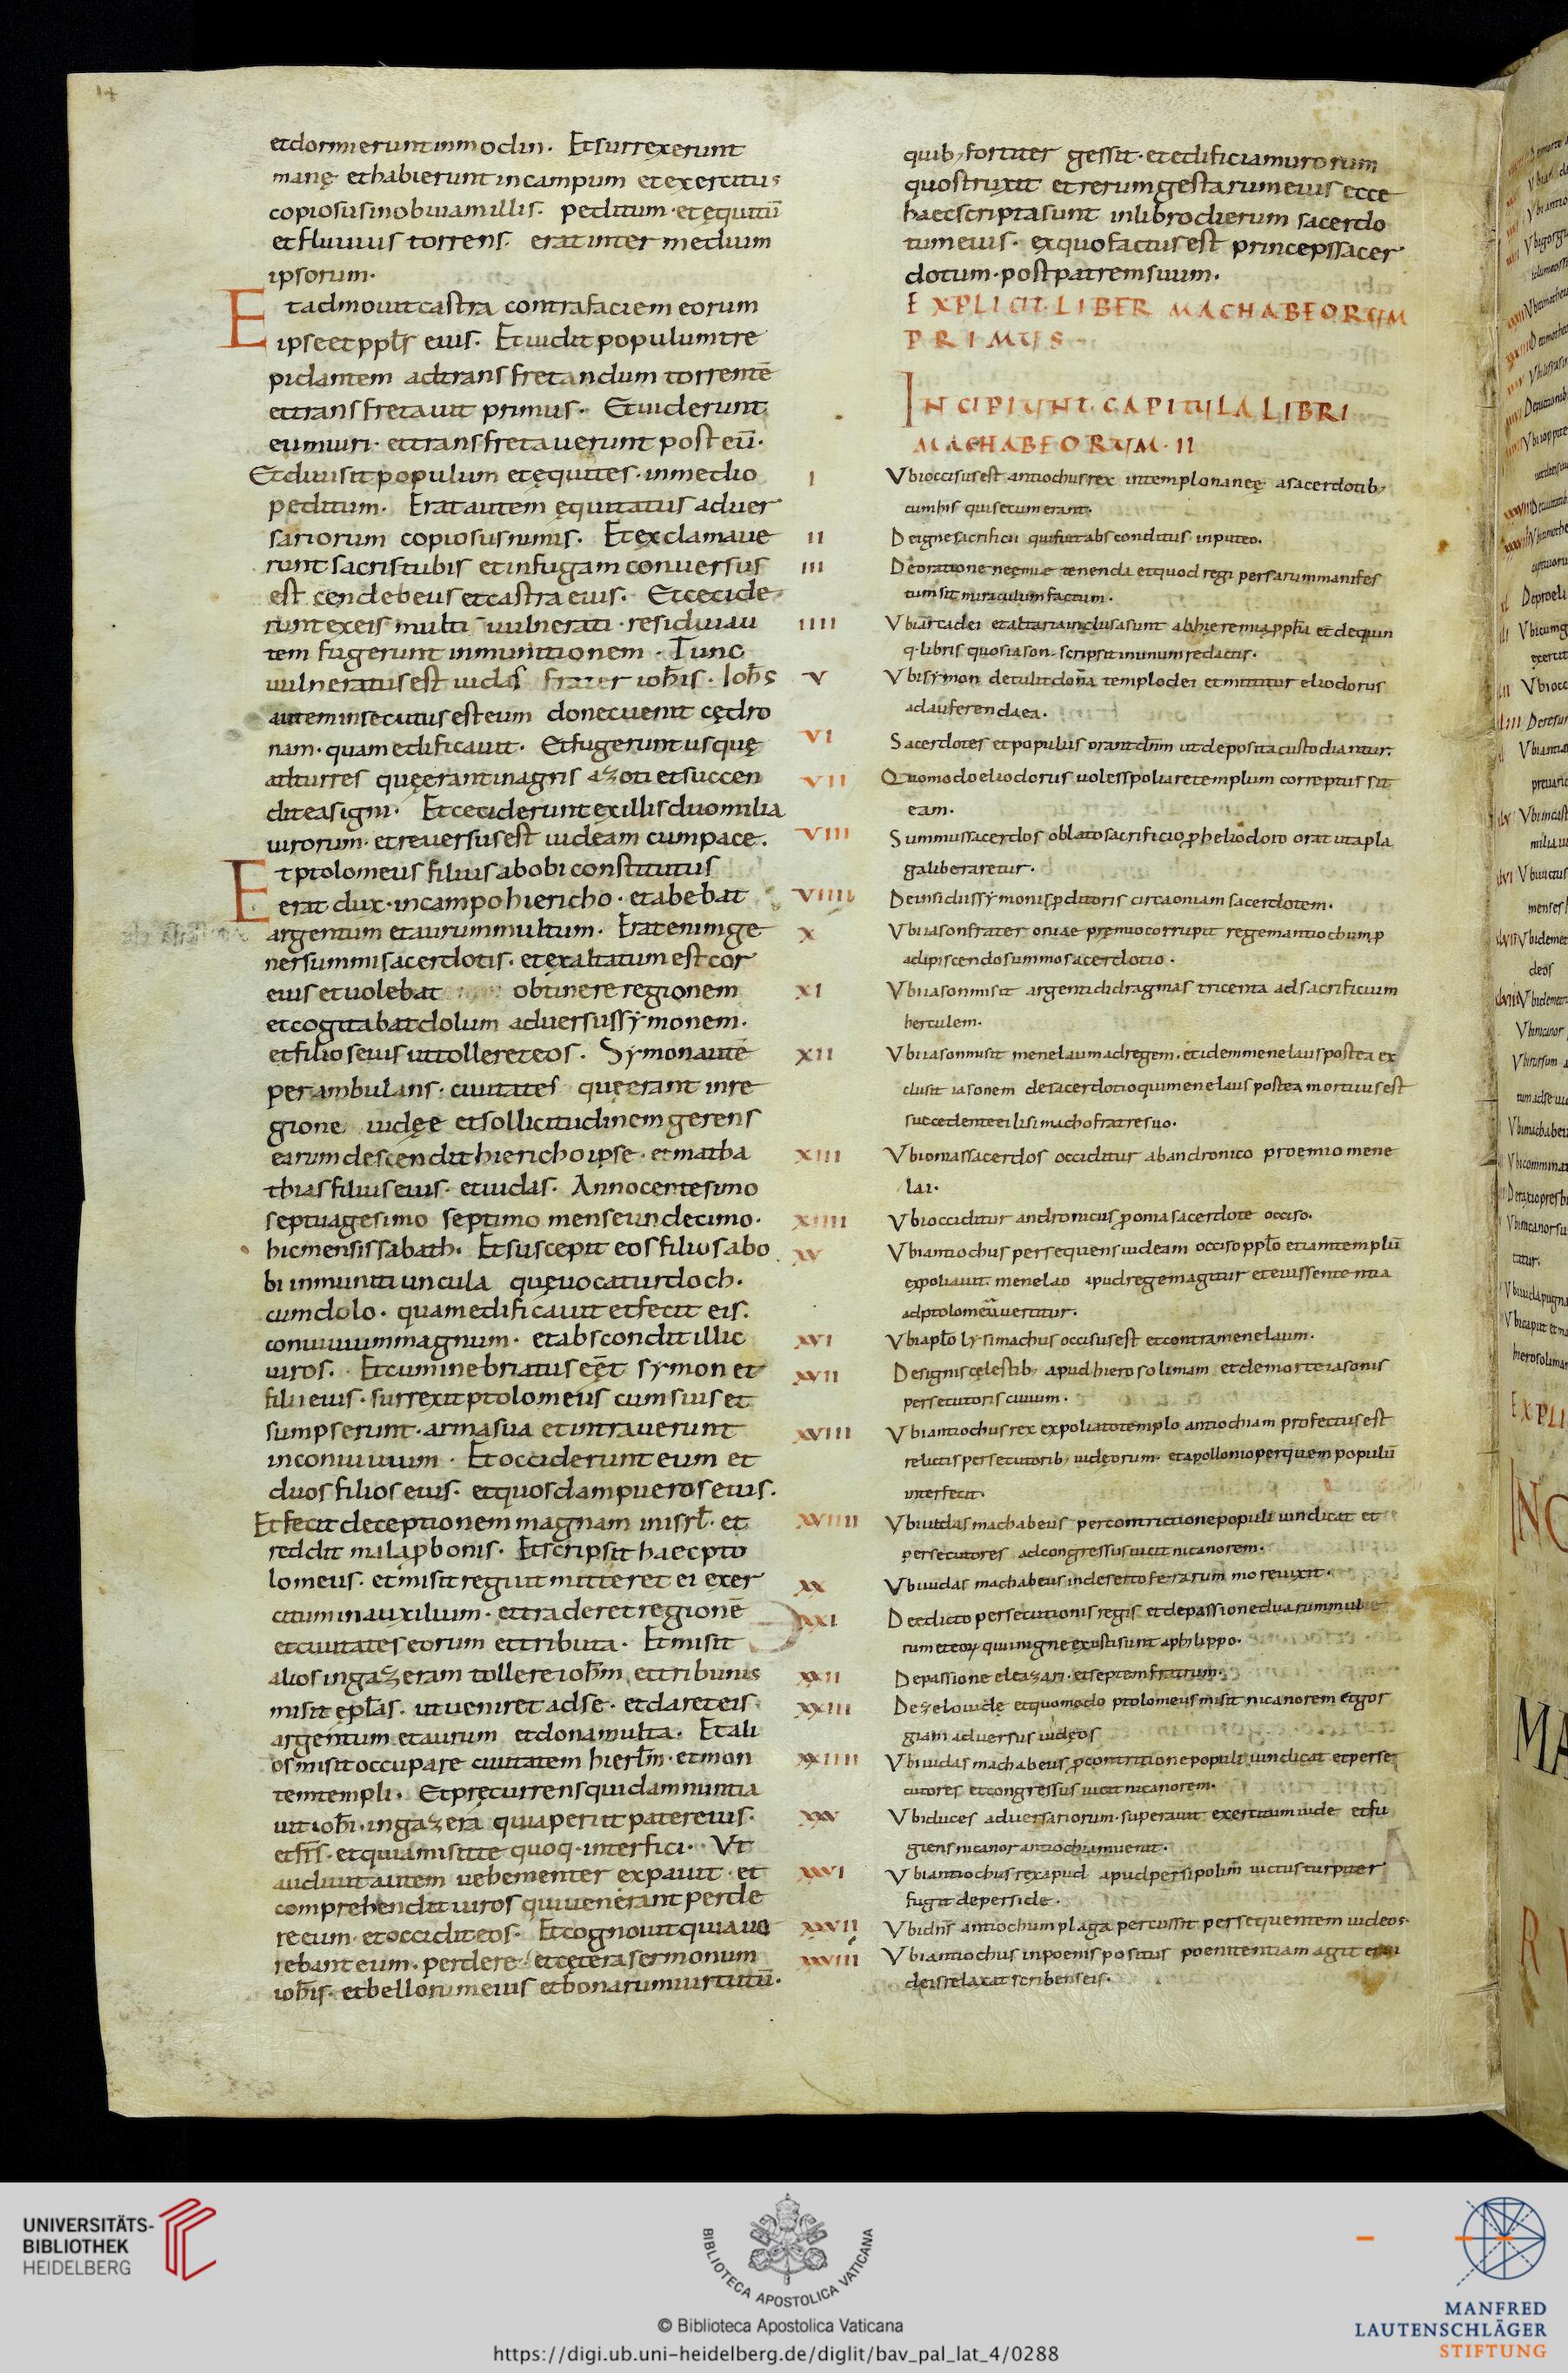 et dormierunt in modin. Et surrexerunt
mane et habierunt in campum et exercitus
copiosus in obuiam illis. peditum. et equitū
et fluuius torrens. erat inter medium
ipsorum.
Et admouit castra contra faciem eorum
ipse et ppl̄s eius. Et uidit populum tre
pidantem ad transfretandum torrentē
et transfretauit primus. Et uiderunt
eum uiri. et transfretauerunt post eū.
Et diuisit populum et equites. in medio
peditum. Erat autem equitatus aduer
sariorum copiosus nimis. Et exclamaue
runt sacris tubis et in fugam conuersus
est cendebeus et castra eius. Et cecide
runt ex eis multi uulnerati. residui au
tem fugerunt in munitionem. Tunc
uulneratus est iudas frater ioh̄is. Ioh̄s
autem insecutus est eum donec uenit cedro
nam. quam edificauit. Et fugerunt usque
ad turres que erant in agris azoti et succen
dit eas igni. Et ceciderunt ex illis duo milia
uirorum. et reuersus est iudeam cum pace.
Et ptolomeus filius abobi constitutus
erat dux. in campo hiericho. et abebat
argentum et aurum multum. Erat enim ge
ner summi sacerdotis. et exaltatum est cor
eius et uolebat obtinere regionem
et cogitabat dolum aduersus symonem.
et filios eius ut tolleret eos. Symon autē
perambulans. ciuitates que erant in re
gione iudee et sollicitudinem gerens
earum descendit hiericho ipse. et matha
thias filius eius. et iudas. Anno centesimo
septuagesimo septimo mense undecimo.
hic mensis sabath. Et suscepit eos filius abo
bi in munitiuncula que uocatur doch.
cum dolo. quam edificauit et fecit eis.
conuiuium magnum. et abscondit illic
uiros. Et cum inebriatus eēt symon et
filii eius. surrexit ptolomeus cum suis et
sumpserunt. arma sua et intrauerunt
in conuiuium. Et occiderunt eum et
duos filios eius. et quosdam pueros eius.
Et fecit deceptionem magnam in isrl̄. et
reddit mala ꝓ bonis. Et scripsit haec pto
lomeus. et misit regi ut mitteret ei exer
citum in auxilium. et traderet regionē
et ciuitates eorum et tributa. Et misit
alios in gazeram tollere ioh̄m et tribunis
misit epl̄as. ut ueniret ad se. et daret eis
argentum et aurum et dona multa. Et ali
os misit occupare ciuitatem hierl̄m. et mon
tem templi. Et precurrens quidam nuntia
uit ioh̄i. in gazera quia periit pater eius.
et fr̄s. et quia misit te quoq. interfici. Vt
audiuit autem uehementer expauit. et
comprehendit uiros qui uenerant perde
re eum. et occidit eos. Et cognouit quia uo
rebant eum. perdere. et cetera sermonum
ioh̄is. et bellorum eius et bonarum uirtutū.
quib; fortiter gessit. et edificia murorum
quos truxit et rerum gestarum eius ecce
haec scripta sunt in libro dierum sacerdo
tum eius. ex quo factus est princeps sacer
dotum. post patrem suum.
EXPLICIT. LIBER MACHABEORUM
PRIMUS
INCIPIUNT. CAPITULA LIBRI
MACHABEORUM. II
I Vbi occisus est antiochus rex in templo nanee a sacerdotib;
cum his qui secum erant.
II De igne sacrificii qui fuit absconditus in puteo.
III De oratione neemie tenenda et quod regi persarum manifes
tum sit miraculum factum.
IIII Vbi arca dei et altaria inclusa sunt ab hieremia ppl̄a et de quin
q. libris quos iason. scripsit in unum redactis.
V Vbi symon detulit dona templo dei et mittitur eliodorus
ad auferenda ea.
VI Sacerdotes et populus orant dn̄m ut deposita custodiantur.
VII Quomodo eliodorus uolens spoliare templum correptus sit
eam.
VIII Summus sacerdos oblato sacrificio ꝓ heliodoro orat ut a pla
ga liberaretur.
VIIII De insidiis symonis ꝓditoris circa oniam sacerdotem.
X Vbi iason frater oniae premio corrupit regem antiochum ꝓ
adipiscendo summo sacerdotio.
XI Vbi iason misit argenti didragmas tricenta ad sacrificium
herculem.
XII Vbi iason misit menelaum ad regem. et idem menelaus postea ex
clusit iasonem de sacerdotio qui menelaus postea mortuus est
succedente ei lisimacho fratre suo.
XIII Vbi onias sacerdos occiditur ab andronico proemio mene
lai.
XIIII Vbi occiditur andronicus ꝓ onia sacerdote occiso.
XV Vbi antiochus persequens iudeam occiso ppl̄o etiam templū
expoliauit. menelao apud regem agitur et eius sententia
ad ptolomeū uertitur.
XVI Vbi a pl̄o lysimachus occisus est et contra menelaum.
XVII De signis celestib; apud hierosolimam et de morte iasonis
persecutoris ciuium.
XVIII Vbi antiochus rex expoliato templo antiochiam profectus est
relictis persecutorib; iudeorum. et apollonio per quem populū
interfecit.
XVIIII Vbi iudas machabeus per contrictione populi uindicat et
persecutores ad congressus uicit nicanorem.
XX Vbi iudas machabeus in deserto ferarum more uixit.
XXI De edicto persecutionis regis et de passione duarum mulie
rum et eoꝝ qui in igne exusti sunt a philippo.
XXII De passione eleazari. et septem fratrum.
XXIII De zelo iude et quomodo ptolomeus misit nicanorem et gor
giam aduersus iudeos
XXIIII Vbi iudas machabeus ꝓ contritione populi uindicat et perse
cutores et congressus uicit nicanorem.
XXV Vbi duces aduersariorum. superauit exercitum iude et fu
giens nicanor antiochiam uenit.
XXVI Vbi antiochus rex apud apud persipolim uictus turpiter
fugit de perside.
XXVII Vbi dn̄s antiochum plaga percussit persequentem iudeos.
XXVIII Vbi antiochus in poenis positus poenitentiam agit
deis relaxat scribens eis.
UNIVERSITÄTS-
BIBLIOTHEK
HEIDELBERG
BIBLIOTECA APOSTOLICA VATICANA
© Biblioteca Apostolica Vaticana
https://digi.ub.uni-heidelberg.de/diglit/bav_pal_lat_4/0288
MANFRED
LAUTENSCHLÄGER
STIFTUNG